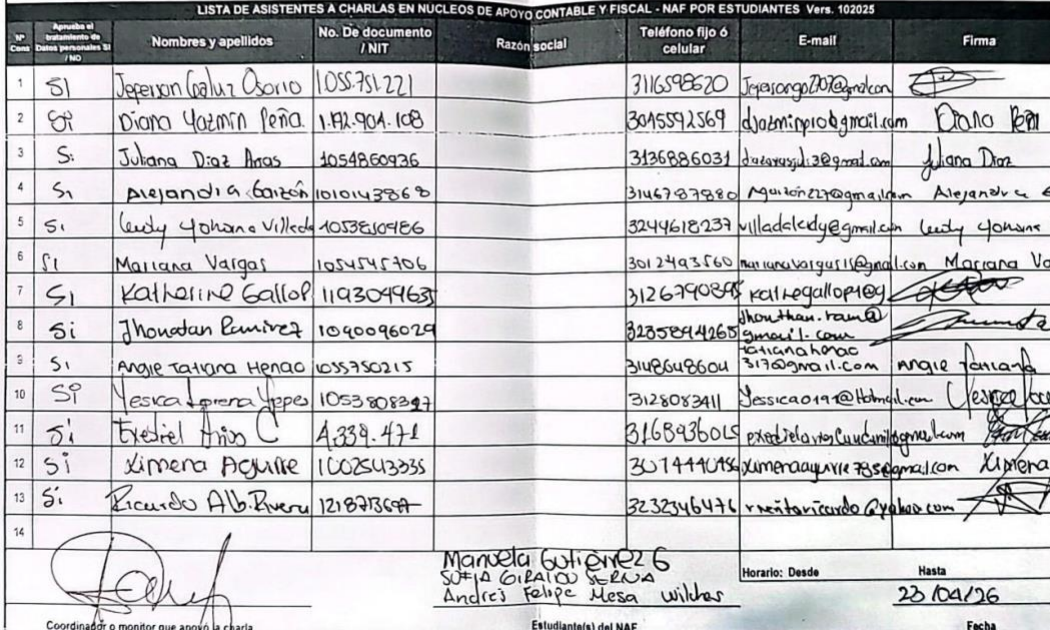 LISTA DE ASISTENTES A CHARLAS EN NÚCLEOS DE APOYO CONTABLE Y FISCAL - NAF POR ESTUDIANTES Vers. 102025
Nº Cons Aprueba el tratamiento de Datos personales SI / NO Nombres y apellidos No. De documento / NIT Razón social Teléfono fijo ó celular E-mail Firma
1 SI Jeperson Galuz Osorio 1.055.751.221 3116598620
2 Si Diana Yazmin Peña 1.192.904.108 3045592569 djazminpio@gmail.com Diana Peñ
3 Si Juliana Diaz Arias 1054860936 3136886031 Juliana Diaz
4 Si Alejandra Garzón 1010143868 3146787880 Alejandra G
5 Si Leidy Yohana Villada 1053850486 3244618237 villadaleidy@gmail.com Leidy Yohana
6 Si Mariana Vargas 1054545706 3012493560 marianavargas15@gmail.com Mariana Va
7 Si Katherine Gallop 1193049635 3126790895 kathegallop1@g
8 Si Jhonatan Ramirez 1090096029 3235894265 jhonthan.ram@
gmail.com
9 Si Angie Tatiana Henao 1055750215 3148648604 tatianahenao
317@gmail.com Angie Tatiana
10 Si Yesica Lorena Yepes 1053808327 3128083411 Yessica0191@Hotmail.com
11 Si Exediel Arias C 4.339.471 3168936015
12 Si Ximena Aguirre 1002543335 3014440456 Ximenaaguirre785@gmail.com Ximena
13 Si Ricardo Alb. Rivera 1218713697 3232346476
14
Manuela Gutiérrez G
SOFIA GIRALDO SERNA
Andres Felipe Mesa Wilches
Horario: Desde Hasta
23/04/26
Coordinador o monitor que apoyó la charla Estudiante(s) del NAF Fecha